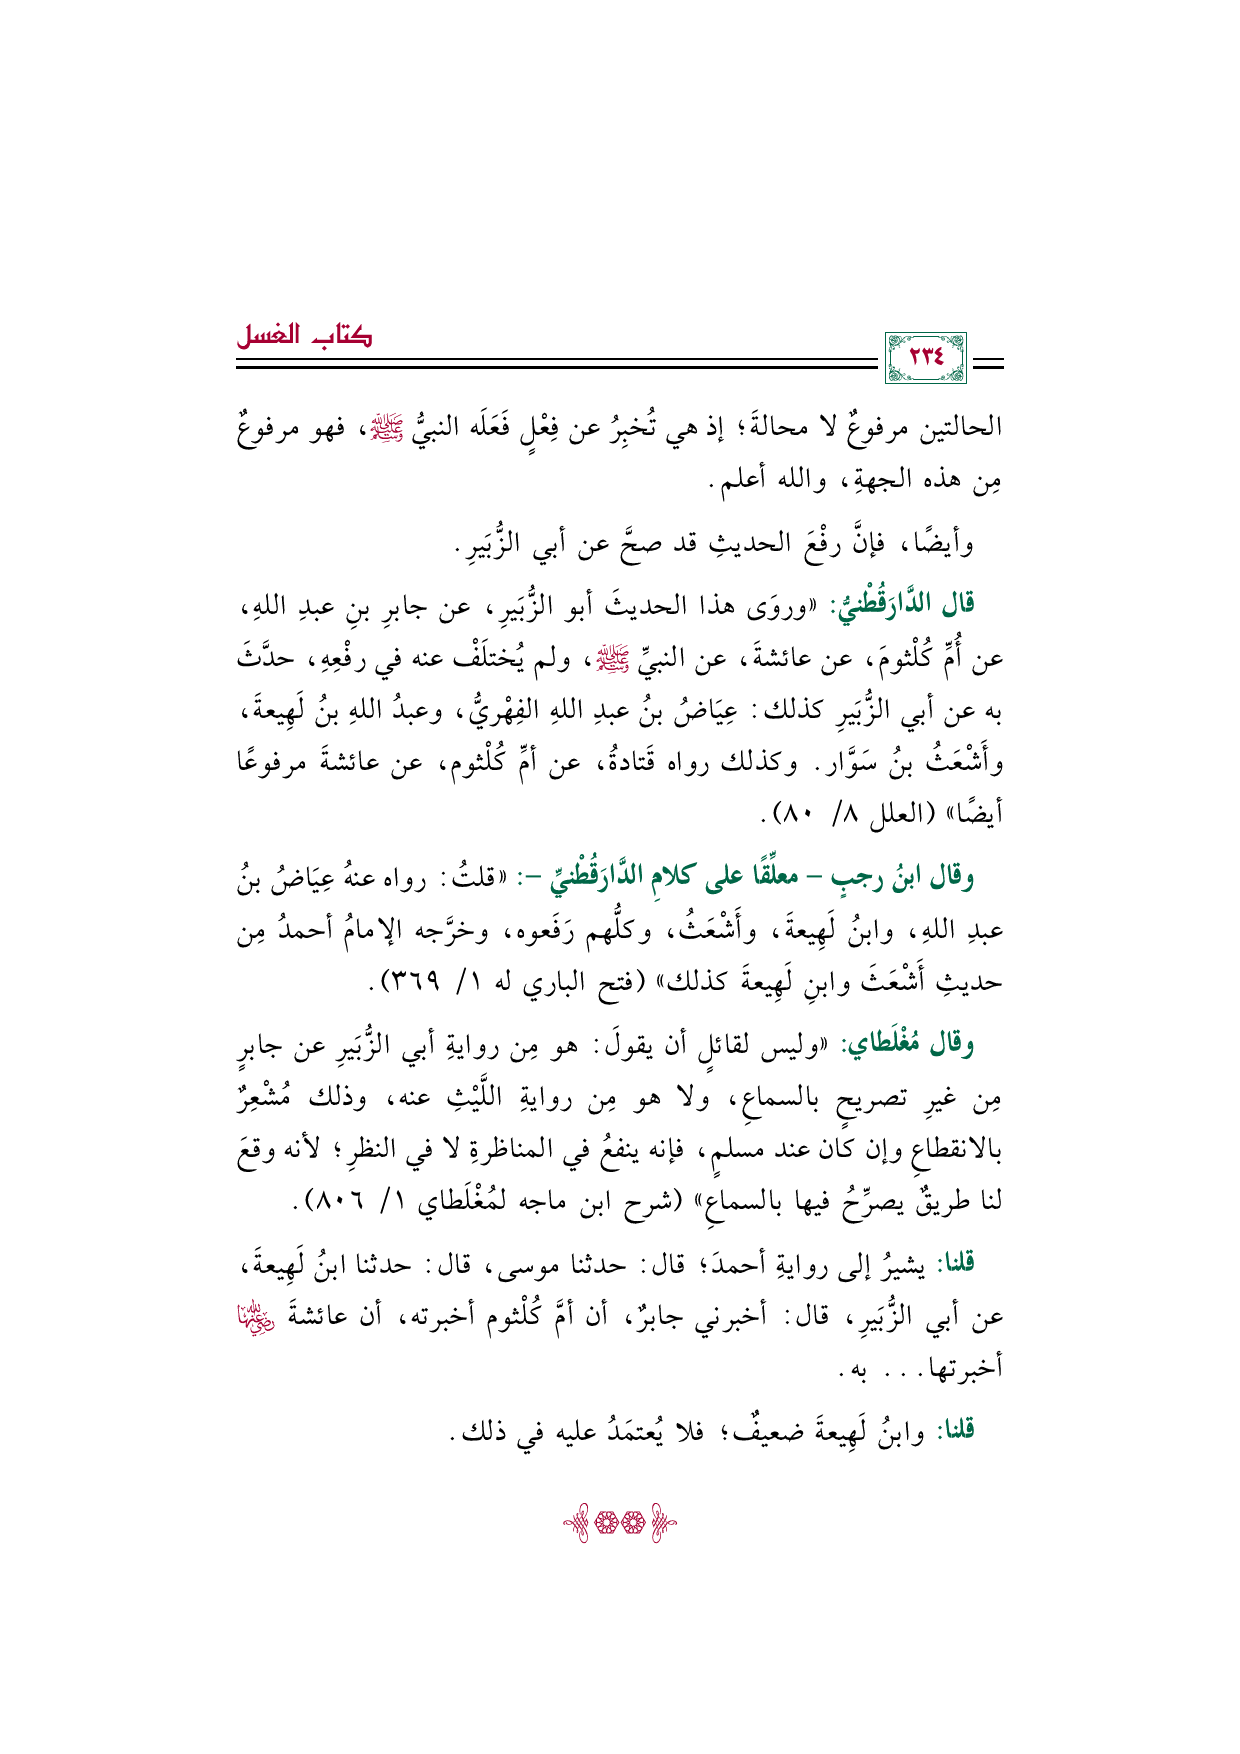 كتاب الغسل
٢٣٤
الحالتين مرفوعٌ لا محالةَ؛ إذ هي تُخبِرُ عن فِعْلٍ فَعَلَه النبيُّ ﷺ، فهو مرفوعٌ
مِن هذه الجهةِ، والله أعلم.
وأيضًا، فإنَّ رفْعَ الحديثِ قد صحَّ عن أبي الزُّبَيرِ.
قال الدَّارَقُطْنيُّ: «وروَى هذا الحديثَ أبو الزُّبَيرِ، عن جابرِ بنِ عبدِ اللهِ،
عن أُمِّ كُلْثومَ، عن عائشةَ، عن النبيِّ ﷺ، ولم يُختلَفْ عنه في رفْعِهِ، حدَّثَ
به عن أبي الزُّبَيرِ كذلك: عِيَاضُ بنُ عبدِ اللهِ الفِهْريُّ، وعبدُ اللهِ بنُ لَهِيعةَ،
وأَشْعَثُ بنُ سَوَّار. وكذلك رواه قَتادةُ، عن أمِّ كُلْثوم، عن عائشةَ مرفوعًا
أيضًا» (العلل ٨/ ٨٠).
وقال ابنُ رجبٍ – معلِّقًا على كلامِ الدَّارَقُطْنيِّ –: «قلتُ: رواه عنهُ عِيَاضُ بنُ
عبدِ اللهِ، وابنُ لَهِيعةَ، وأَشْعَثُ، وكلُّهم رَفَعوه، وخرَّجه الإمامُ أحمدُ مِن
حديثِ أَشْعَثَ وابنِ لَهِيعةَ كذلك» (فتح الباري له ١/ ٣٦٩).
وقال مُغْلَطاي: «وليس لقائلٍ أن يقولَ: هو مِن روايةِ أبي الزُّبَيرِ عن جابرٍ
مِن غيرِ تصريحٍ بالسماعِ، ولا هو مِن روايةِ اللَّيْثِ عنه، وذلك مُشْعِرٌ
بالانقطاعِ وإن كان عند مسلمٍ، فإنه ينفعُ في المناظرةِ لا في النظرِ؛ لأنه وقعَ
لنا طريقٌ يصرِّحُ فيها بالسماعِ» (شرح ابن ماجه لمُغْلَطاي ١/ ٨٠٦).
قلنا: يشيرُ إلى روايةِ أحمدَ؛ قال: حدثنا موسى، قال: حدثنا ابنُ لَهِيعةَ،
عن أبي الزُّبَيرِ، قال: أخبرني جابرٌ، أن أمَّ كُلْثوم أخبرته، أن عائشةَ رضي الله عنها
أخبرتها... به.
قلنا: وابنُ لَهِيعةَ ضعيفٌ؛ فلا يُعتمَدُ عليه في ذلك.